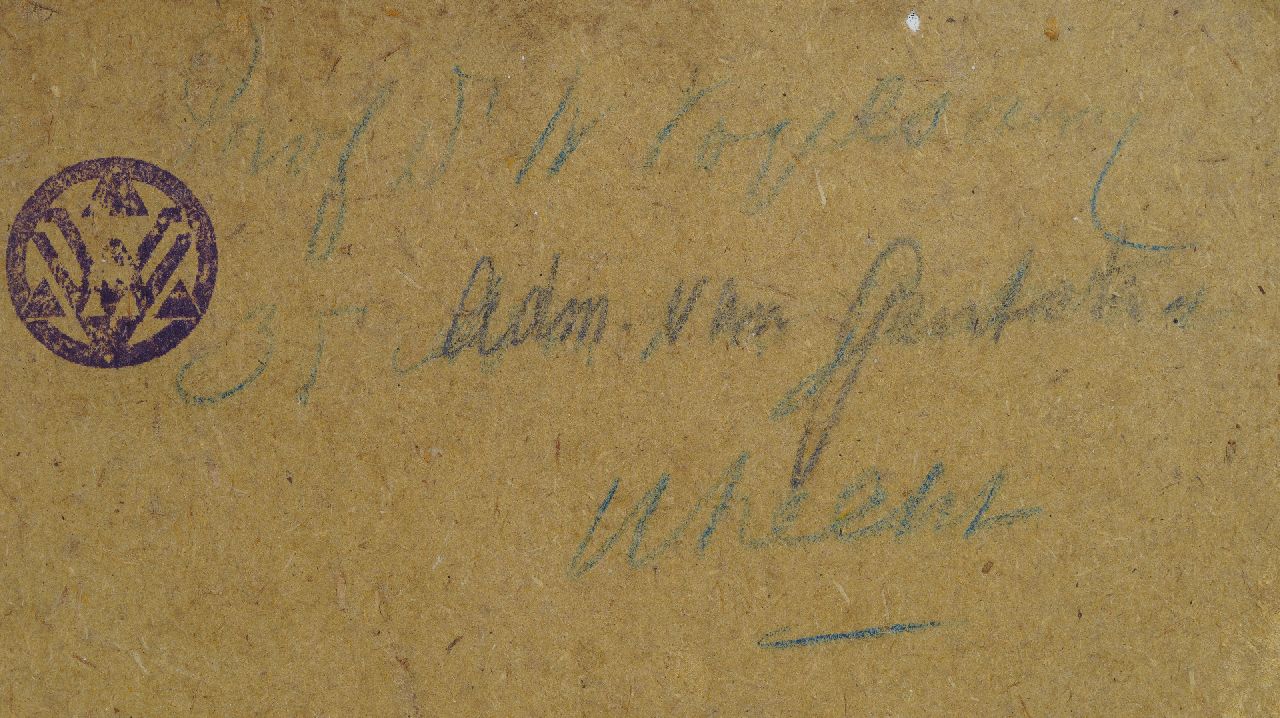 Prof Dr W Vogelsang
35 Adm. van Gentstr
Utrecht